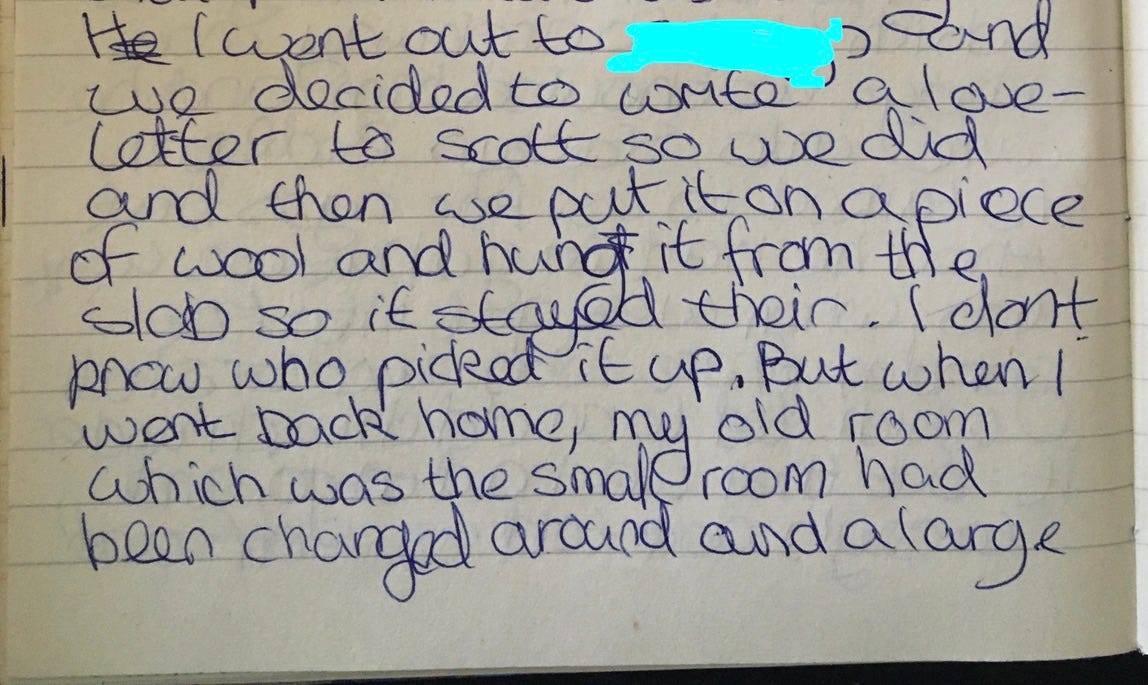 He I went out to 's and
we decided to write a love-
letter to scott so we did
and then we put it on a piece
of wool and hung it from the
slab so it stayed their. I dont
know who picked it up. But when I
went back home, my old room
which was the small room had
been changed around and a large